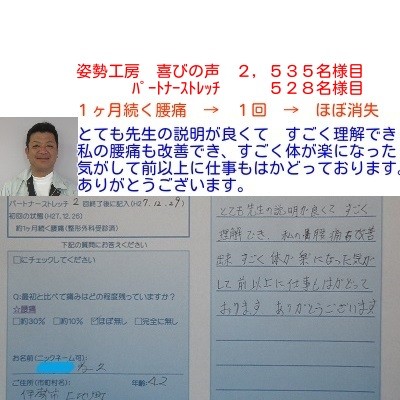 姿勢工房　喜びの声　２，５３５名様目
パートナーストレッチ　５２８名様目
１ヶ月続く腰痛　→　１回　→　ほぼ消失
とても先生の説明が良くて　すごく理解でき
私の腰痛も改善でき、すごく体が楽になった
気がして前以上に仕事もはかどっております。
ありがとうございます。
パートナーストレッチ 2 回終了後に記入(H27.12.29)
初回の状態(H27.12.26)
約1ヶ月続く腰痛(整形外科受診済)
下記の質問にお答えください
□にチェックしてください
Q:最初と比べて痛みはどの程度残っていますか?
☆腰痛
□約30% □約10% ☑ほぼ無し □完全に無し
お名前(ニックネーム可):
ご住所(市町村名): 年齢:42
とても先生の説明が良くて すごく
理解でき、私の腰痛も改善
出来 すごく体が楽になった気が
して前以上に仕事もはかどって
おります ありがとうございます